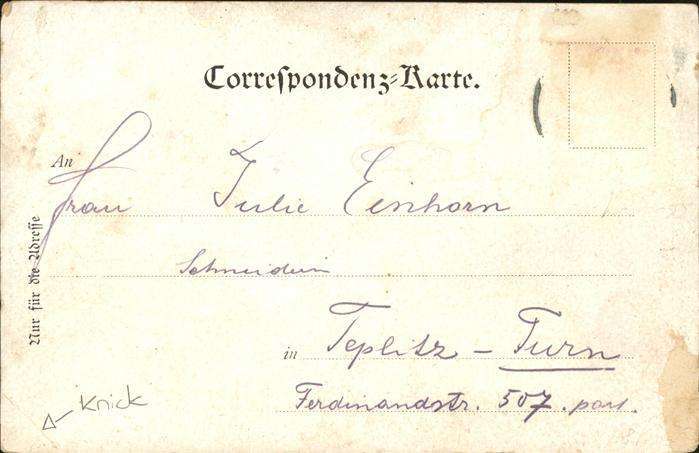 Correspondenz-Karte.
An
Frau Julie Einhorn
Schneiderin
in Teplitz - Turn
Ferdinandstr. 507. part.
Nur für die Adresse
Knick